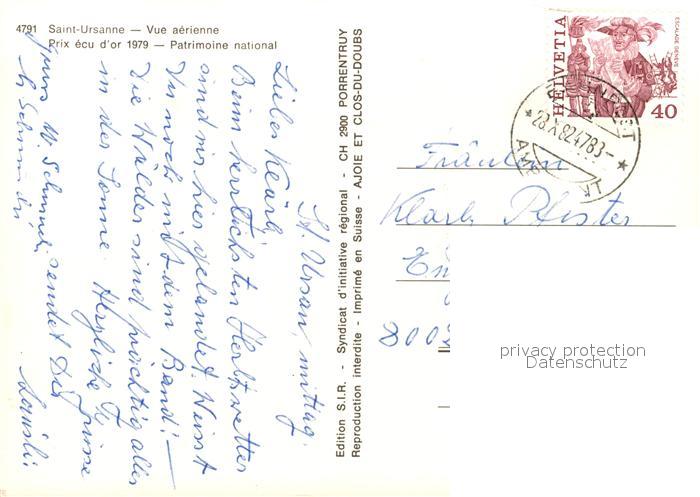 4791 Saint-Ursanne — Vue aérienne
Prix écu d'or 1979 — Patrimoine national
St. Ursan, mittag.
Liebes Klärli
Beim herrlichsten Herbstwetter
sind wir hier gelandet. Weisst
Du noch mit dem Band! —
Die Wälder sind prächtig alles
in der Sonne. Herzliche Grüsse
sendet Dir
W. Schmidli
Edition S.I.R. - Syndicat d'initiative régional - CH 2900 PORRENTRUY
Reproduction interdite - Imprimé en Suisse - AJOIE ET CLOS-DU-DOUBS
HELVETIA
ESCALADE GENEVE
40
28.X.82 4783
Fräulein
Klärli Pfister
800
privacy protection
Datenschutz